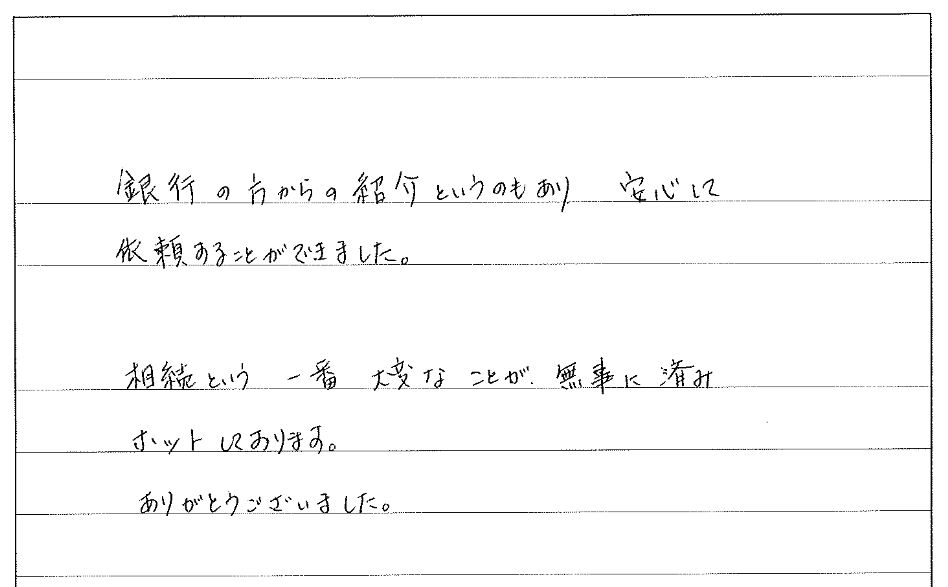 銀行の方からの紹介というのもあり 安心して
依頼することができました。
相続という 一番 大変な ことが 無事に 済み
ホットしております。
ありがとうございました。